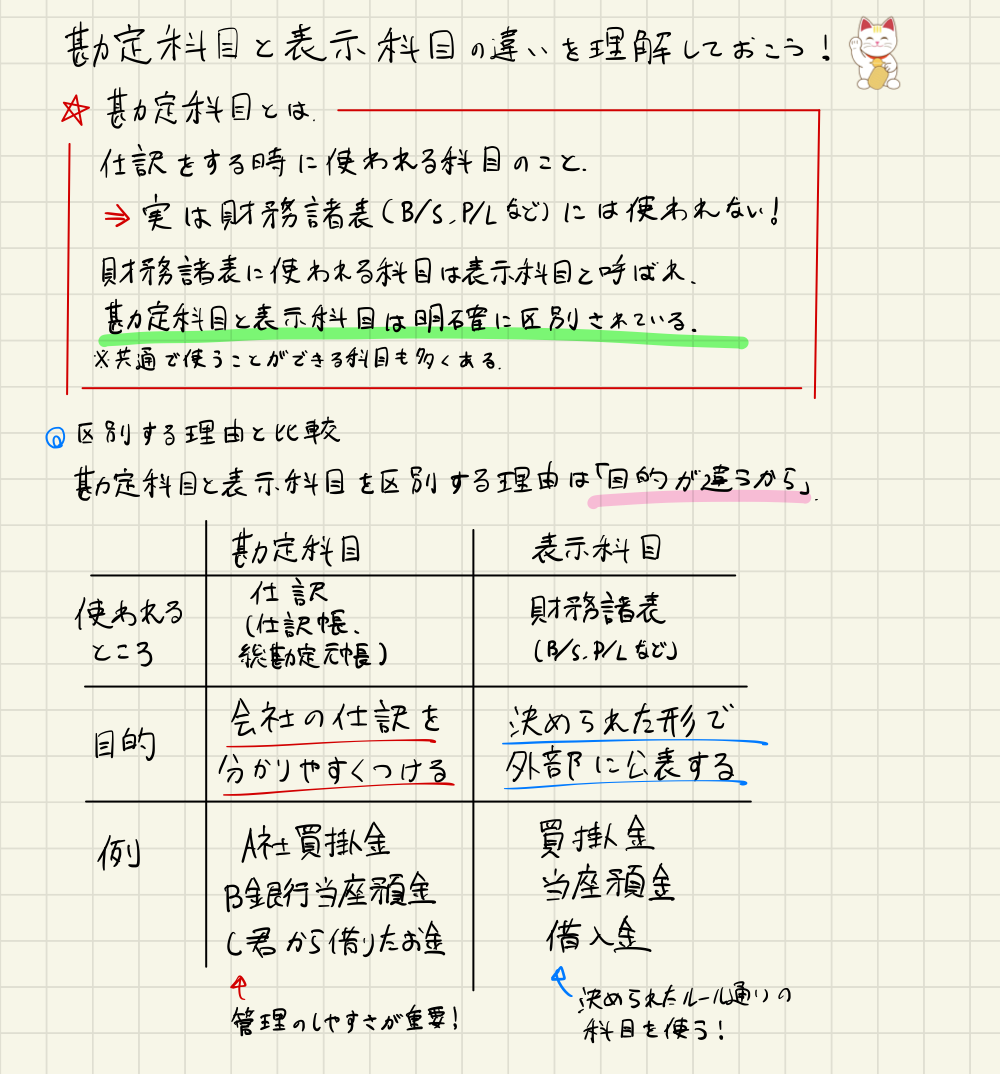 勘定科目と表示科目の違いを理解しておこう!
☆ 勘定科目とは、
仕訳をする時に使われる科目のこと。
⇒ 実は財務諸表(B/S、P/Lなど)には使われない!
財務諸表に使われる科目は表示科目と呼ばれ、
勘定科目と表示科目は明確に区別されている。
※共通で使うことができる科目も多くある。
◎区別する理由と比較
勘定科目と表示科目を区別する理由は「目的が違うから」。
勘定科目 表示科目
使われるところ
仕訳
(仕訳帳、
総勘定元帳)
財務諸表
(B/S、P/Lなど)
目的
会社の仕訳を
分かりやすくつける
決められた形で
外部に公表する
例
A社買掛金
B銀行当座預金
C君から借りたお金
買掛金
当座預金
借入金
↑
管理のしやすさが重要!
決められたルール通りの
科目を使う!